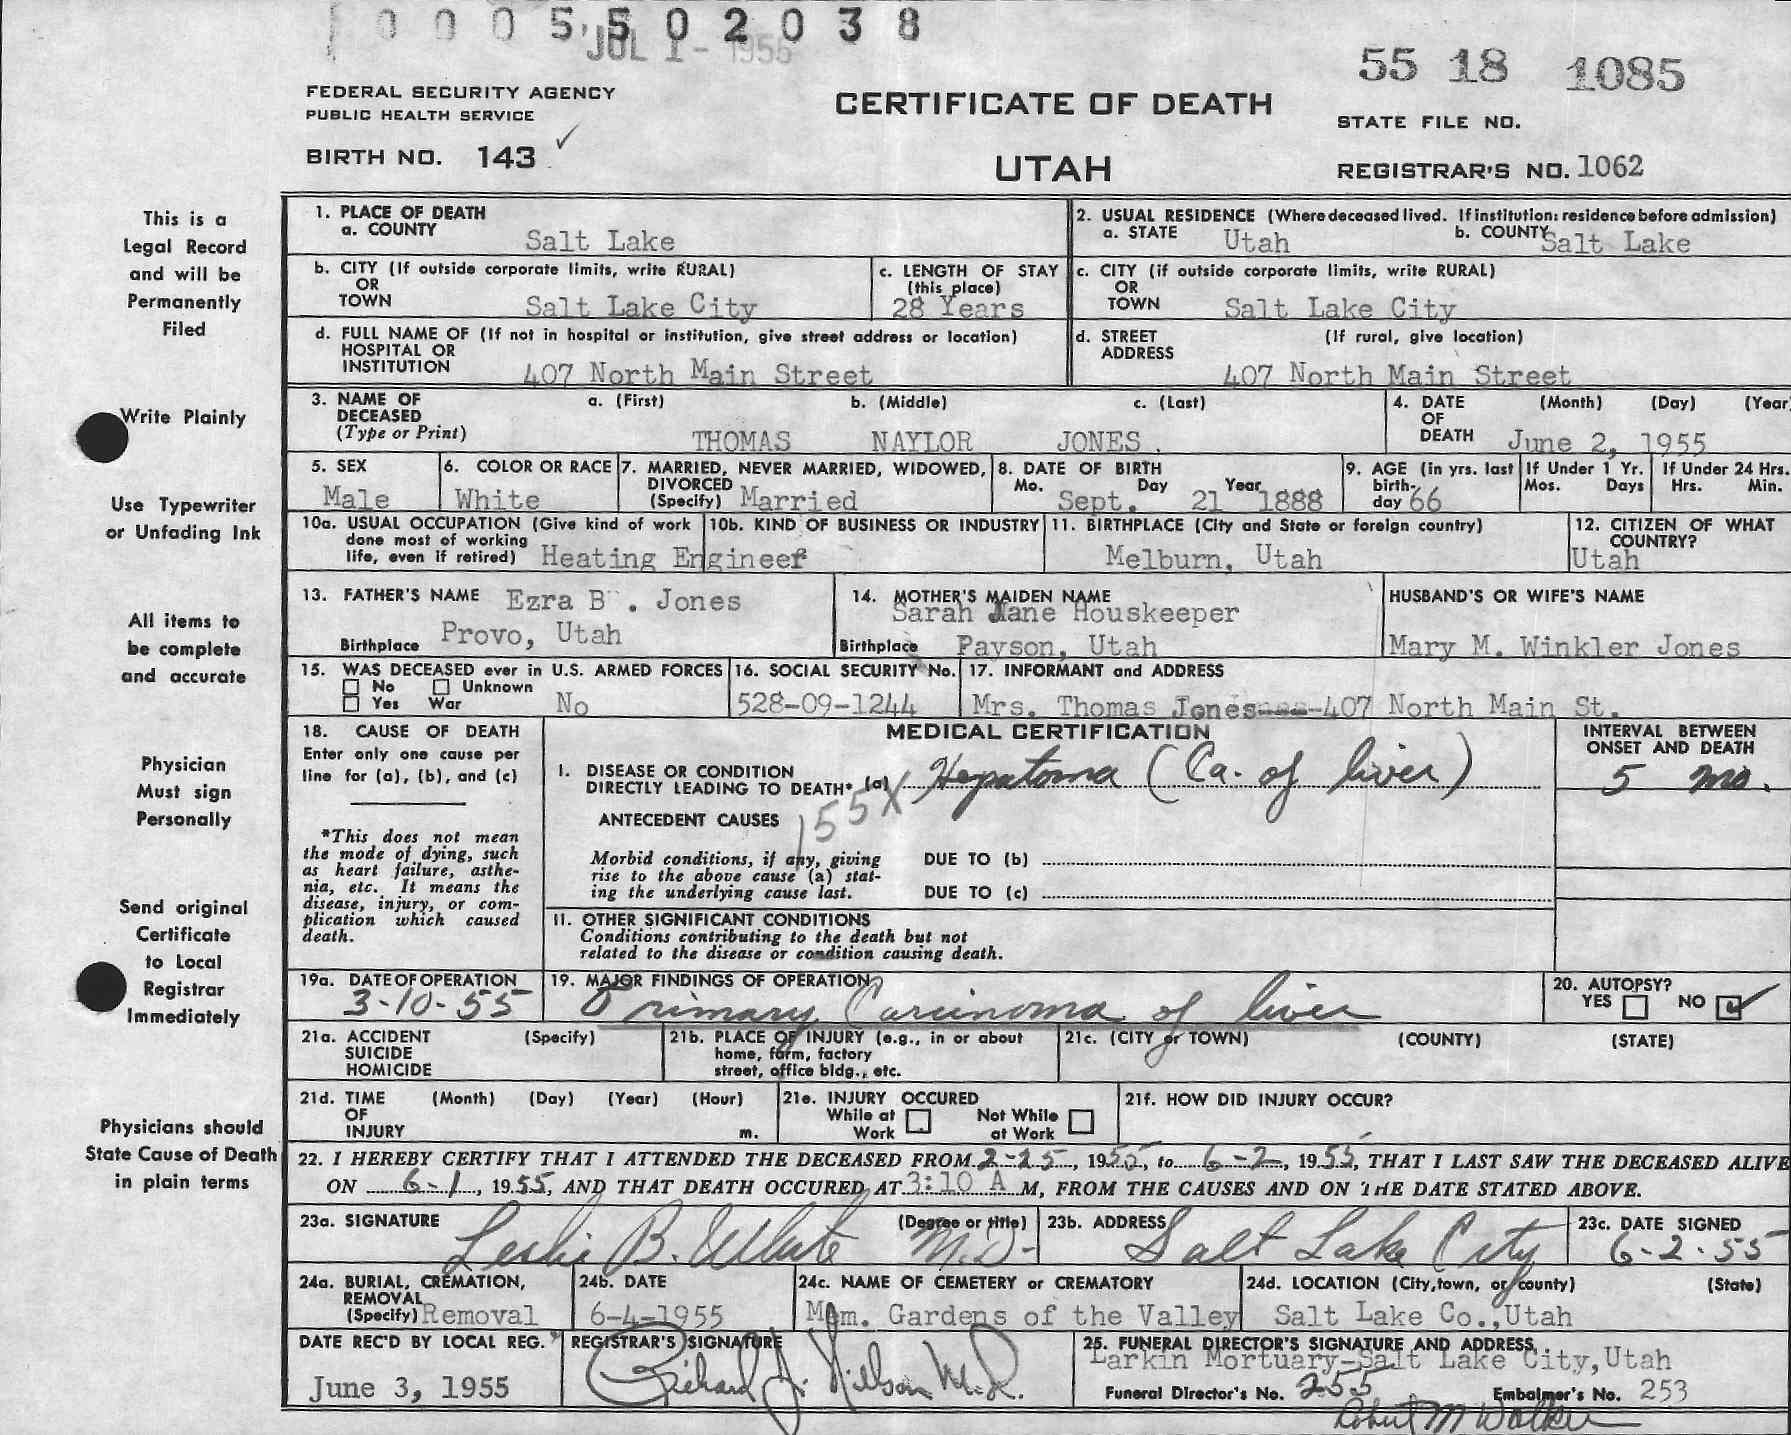 0 0 0 5 5 0 2 0 3 8
JUL 1 - 1955
55 18 1085
FEDERAL SECURITY AGENCY
PUBLIC HEALTH SERVICE
BIRTH NO. 143
CERTIFICATE OF DEATH
UTAH
STATE FILE NO.
REGISTRAR'S NO. 1062
This is a
Legal Record
and will be
Permanently
Filed
Write Plainly
Use Typewriter
or Unfading Ink
All items to
be complete
and accurate
Physician
Must sign
Personally
Send original
Certificate
to Local
Registrar
Immediately
Physicians should
State Cause of Death
in plain terms
1. PLACE OF DEATH
a. COUNTY
Salt Lake
2. USUAL RESIDENCE (Where deceased lived. If institution: residence before admission)
a. STATE Utah b. COUNTY Salt Lake
b. CITY (If outside corporate limits, write RURAL)
OR
TOWN Salt Lake City
c. LENGTH OF STAY
(this place)
28 Years
c. CITY (if outside corporate limits, write RURAL)
OR
TOWN Salt Lake City
d. FULL NAME OF (If not in hospital or institution, give street address or location)
HOSPITAL OR
INSTITUTION 407 North Main Street
d. STREET (If rural, give location)
ADDRESS
407 North Main Street
3. NAME OF a. (First) b. (Middle) c. (Last)
DECEASED
(Type or Print) THOMAS NAYLOR JONES.
4. DATE (Month) (Day) (Year
OF
DEATH June 2, 1955
5. SEX
Male
6. COLOR OR RACE
White
7. MARRIED, NEVER MARRIED, WIDOWED,
DIVORCED
(Specify) Married
8. DATE OF BIRTH
Mo. Day Year
Sept. 21 1888
9. AGE (in yrs. last
birth-
day 66
If Under 1 Yr.
Mos. Days
If Under 24 Hrs.
Hrs. Min.
10a. USUAL OCCUPATION (Give kind of work
done most of working
life, even if retired) Heating Engineer
10b. KIND OF BUSINESS OR INDUSTRY
11. BIRTHPLACE (City and State or foreign country)
Melburn, Utah
12. CITIZEN OF WHAT
COUNTRY?
Utah
13. FATHER'S NAME Ezra B . Jones
Birthplace Provo, Utah
14. MOTHER'S MAIDEN NAME
Sarah Jane Houskeeper
Birthplace Payson, Utah
HUSBAND'S OR WIFE'S NAME
Mary M. Winkler Jones
15. WAS DECEASED ever in U.S. ARMED FORCES
No Unknown
Yes War No
16. SOCIAL SECURITY No.
528-09-1244
17. INFORMANT and ADDRESS
Mrs. Thomas Jones----407 North Main St.
18. CAUSE OF DEATH
Enter only one cause per
line for (a), (b), and (c)
*This does not mean
the mode of dying, such
as heart failure, asthe-
nia, etc. It means the
disease, injury, or com-
plication which caused
death.
MEDICAL CERTIFICATION
I. DISEASE OR CONDITION
DIRECTLY LEADING TO DEATH* (a) Hepatoma (Ca. of liver)
155X
ANTECEDENT CAUSES
Morbid conditions, if any, giving
rise to the above cause (a) stat-
ing the underlying cause last.
DUE TO (b)
DUE TO (c)
II. OTHER SIGNIFICANT CONDITIONS
Conditions contributing to the death but not
related to the disease or condition causing death.
INTERVAL BETWEEN
ONSET AND DEATH
5 mo.
19a. DATE OF OPERATION
3-10-55
19. MAJOR FINDINGS OF OPERATION
Primary Carcinoma of liver
20. AUTOPSY?
YES NO
21a. ACCIDENT (Specify)
SUICIDE
HOMICIDE
21b. PLACE OF INJURY (e.g., in or about
home, farm, factory
street, office bldg., etc.
21c. (CITY or TOWN) (COUNTY) (STATE)
21d. TIME (Month) (Day) (Year) (Hour)
OF
INJURY m.
21e. INJURY OCCURED
While at Not While
Work at Work
21f. HOW DID INJURY OCCUR?
22. I HEREBY CERTIFY THAT I ATTENDED THE DECEASED FROM 2-25, 1955, to 6-2, 1955, THAT I LAST SAW THE DECEASED ALIVE
ON 6-1, 1955, AND THAT DEATH OCCURED AT 3:10 A M, FROM THE CAUSES AND ON THE DATE STATED ABOVE.
23a. SIGNATURE (Degree or title)
Leslie B. White M.D-
23b. ADDRESS
Salt Lake City
23c. DATE SIGNED
6-2-55
24a. BURIAL, CREMATION,
REMOVAL
(Specify) Removal
24b. DATE
6-4-1955
24c. NAME OF CEMETERY or CREMATORY
Mem. Gardens of the Valley
24d. LOCATION (City, town, or county) (State)
Salt Lake Co., Utah
DATE REC'D BY LOCAL REG.
June 3, 1955
REGISTRAR'S SIGNATURE
Richard J. Nilson M.D.
25. FUNERAL DIRECTOR'S SIGNATURE AND ADDRESS
Larkin Mortuary-Salt Lake City, Utah
Funeral Director's No. 255 Embalmer's No. 253
Robert M Walker